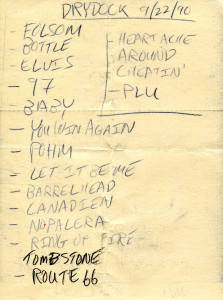 DRYDOCK 9/22/90
- FOLSOM
- BOTTLE
- ELVIS
- 97
- BABY
- YOU WIN AGAIN
- POHM
- LET IT BE ME
- BARRELHEAD
- CANADIEN
- NOPALERA
- RING OF FIRE
- TOMBSTONE
- ROUTE 66
- HEARTACHE
- AROUND
- CHEATIN'
- PLU